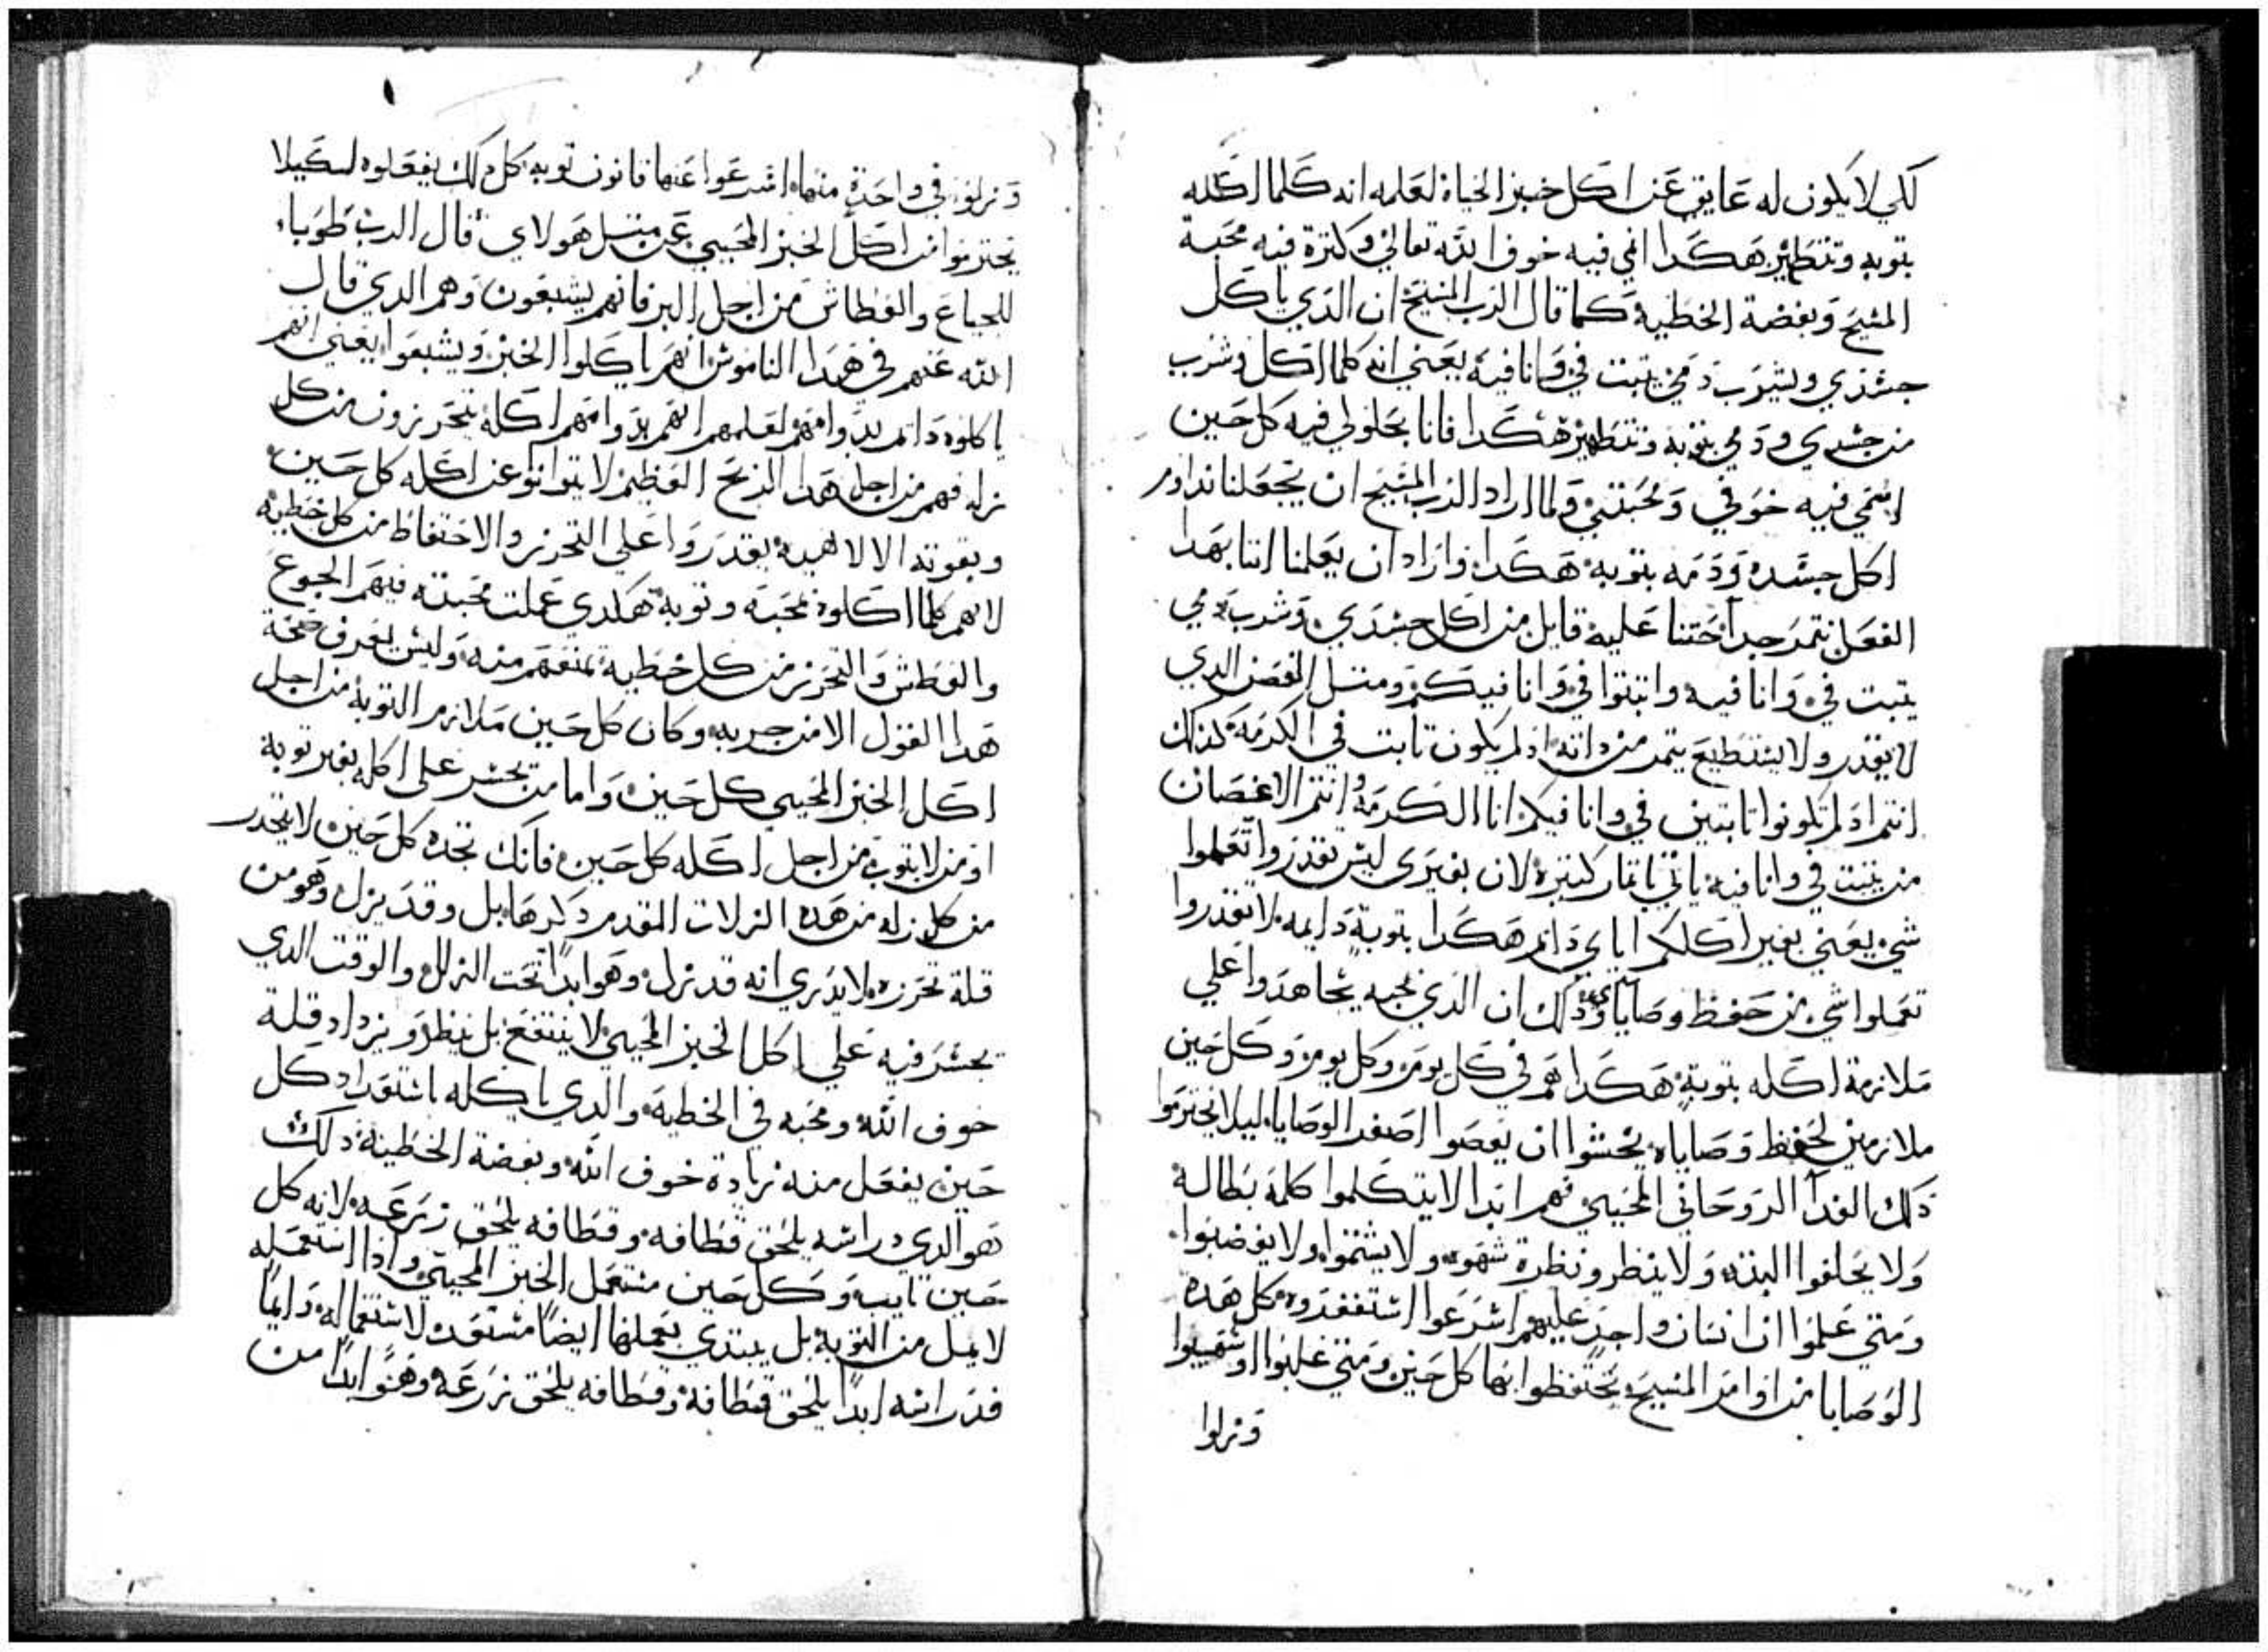 لكي لا يكون له عايق عن اكل خبز الحياة لعلمه انه كلما اكله
بتوبه وتطهير هكدا انمي فيه خوف الله تعالي وكترة فيه محبة
المسيح وبغضة الخطية كما قال الرب المسيح ان الدي ياكل
جسدي ويشرب دمي يتبت في وانا فيه يعني انه كلما اكل وشرب
من جسدي ودمي بتوبه وتطهير هكدا فانا بحلولي فيه كل حين
انمي فيه خوفي ومحبتي ولما اراد الرب المسيح ان يجعلنا نداوم
اكل جسده ودمه بتوبة هكدا واراد ان يعلمنا اننا بهدا
الفعل نتمر جدا حتنا عليه قايل من اكل جسدي وشرب دمي
يتبت في وانا فيه واتبتوا في وانا فيكم ومتل الغصن الدي
لا يقدر ولا يستطيع يتمر من داته ادا لم يكون تابت في الكرمة كدلك
انتم اد لم تكونوا تابتين في وانا فيكم انا الكرمة وانتم الاغصان
من يتبت في وانا فيه ياتي باتمار كتيرة لان بغيري ليس تقدروا تعملوا
شي يعني بغير اكلكم اياي دايم هكدا بتوبة دايمه لا تقدروا
تعملوا شي من حفظ وصاياي ودلك ان الدي يحبه يجاهدوا علي
ملازمة اكله بتوبة هكدا هم في كل يوم وكل يوم وكل حين
ملازمين لحفظ وصاياه يخشوا ان يعصوا اصغر الوصايا ليلا يحترموا
دلك الغدا الروحاني المحيي فهم ابدا لا يتكلموا كلمة بطالة
ولا يحلفوا البته ولا ينظرو نظرة شهوه ولا يشتموا ولا يغضبوا
ومتي علموا ان انسان واجد عليهم اسرعوا استغفروه كل هده
الوصايا من اوامر المسيح يحتفظوا بها كل حين ومتي غلبوا او سهيوا
وزلوا
وزلوا في واحدة منها اسرعوا عنها قانون توبة كل دلك يفعلوه لكيلا
يحترموا من اكل الخبز المحيي عن متل هولاي قال الرب طوبا
للجياع والعطاش من اجل البر فانهم يشبعون وهم الدي قال
الله عنهم في هدا الناموس انهم ياكلوا الخبز ويشبعوا يعني انهم
ياكلوه دايم بدوامهم لعلمهم انهم بدوامهم اكله يتحرزون من كل
زله فهم من اجل هدا الربح العظيم لا يتوانوا عن اكله كل حين
وبقوته الالاهية يقدروا علي التحرز والاحتفاظ من كل خطيه
لانهم كلما اكلوه بمحبة وتوبة هكدي عملت محبته فيهم الجوع
والعطش والتحرز من كل خطية تمنعهم منه وليس يعرف صحة
هدا القول الا من جربه وكان كل حين ملازم التوبة من اجل
اكل الخبز المحيي كل حين واما من يجسر علي اكله بغير توبة
او من لا يتوب من اجل اكله كل حين فانك تجده كل حين لا يتحرر
من كل زله من هده الزلات المقدم دكرها بل وقد يزل وهو من
قلة تحرزه لا يدري انه قد زل وهو ابدا تحت الزلل والوقت الدي
يجسر فيه علي اكل الخبز المحيي لا ينتفع بل ينظر ويزداد قلة
خوف الله ومحبه في الخطية والدي ياكله باستعداد كل
حين يفعل منه زيادة خوف الله وبغضة الخطية دلك
هو الدي دراسه يلحق قطافه وقطافه يلحق زرعه لانه كل
حين تايب وكل حين مستعمل الخبز المحيي وادا استعمله
لا يمل من التوبة بل يبتدي يعملها ايضا مستعد لاستعماله دايما
فدراسه ابدا يلحق قطافه وقطافه يلحق زرعه وهو ابدا من